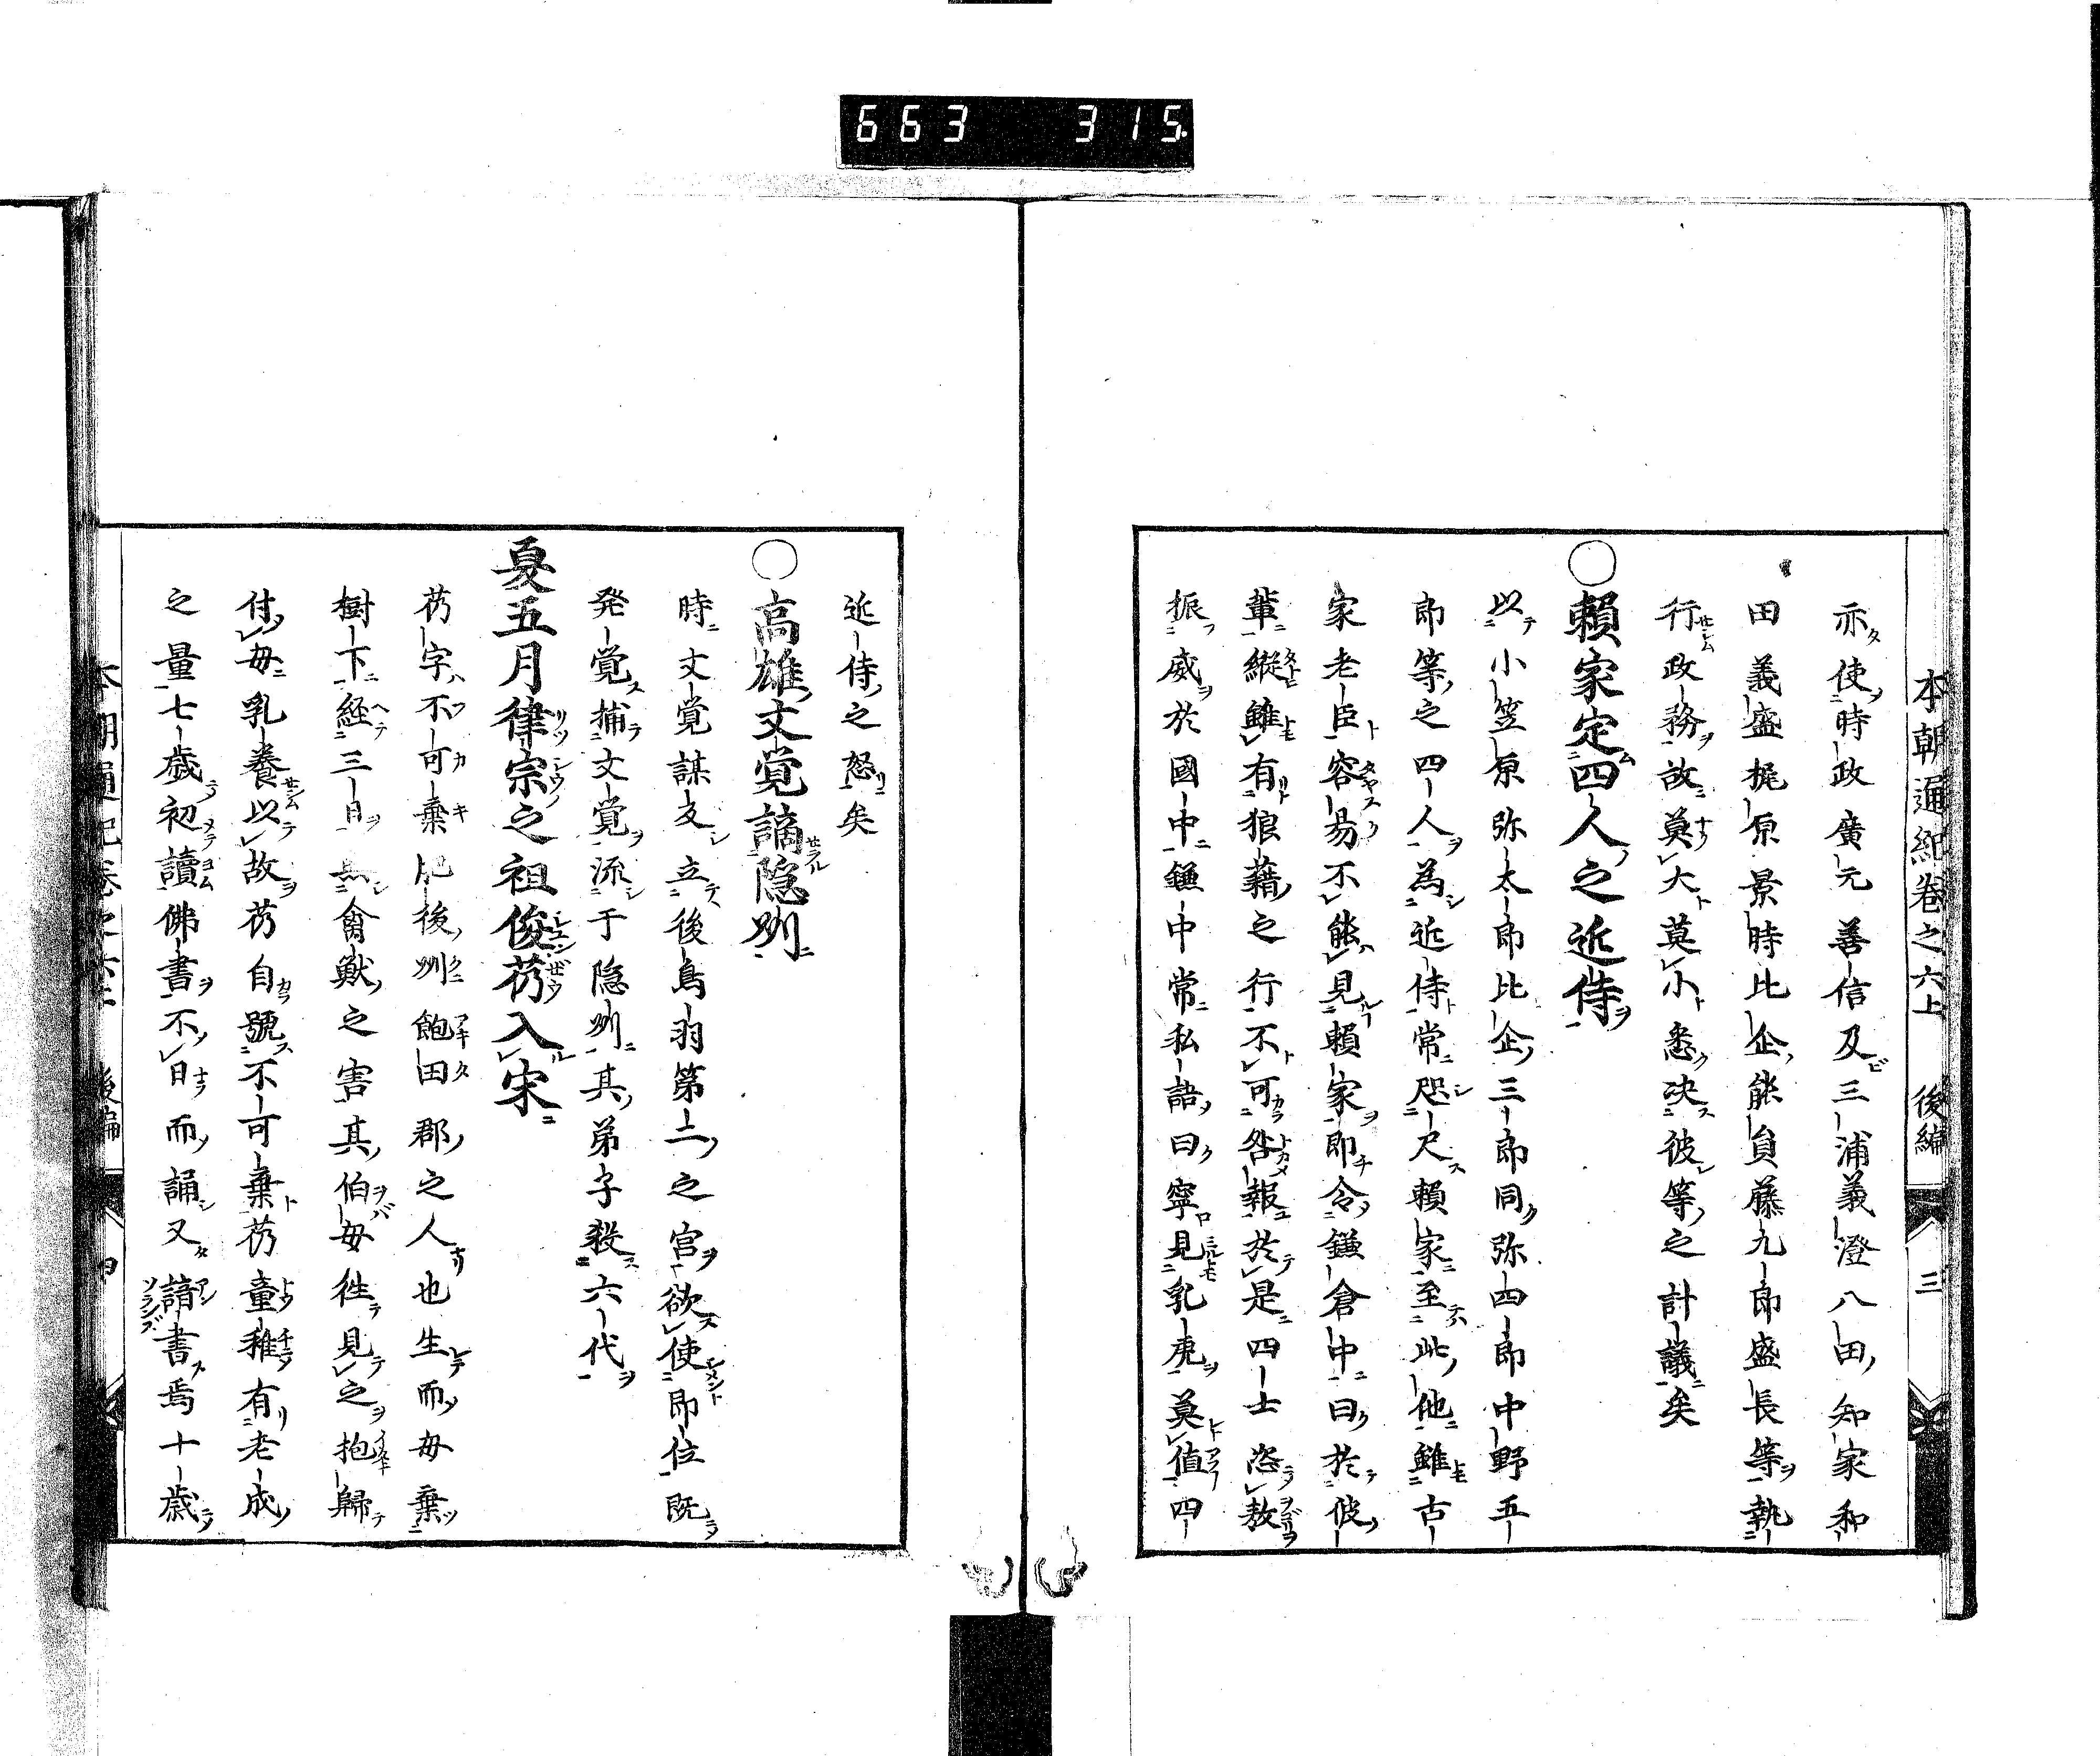 663 315.
本朝通紀巻之六上 後編 三
亦使時政廣元善信及三浦義澄八田知家和
田義盛梶原景時比企能員藤九郎盛長等執
行政務故莫大莫小悉决彼等之計議矣
○賴家定四人之近侍
以小笠原弥太郎比企三郎同弥四郎中野五
郎等之四人為近侍常咫尺賴家至此他雖古
家老臣容昜不能見賴家即令鎌倉中曰於彼
輩縦雖有狼藉之行不可咎報於是四士恣敖
振威於國中鎌中常私語曰寧見乳虎莫値四
近侍之怒矣
○高雄文覚謫隠州
時文覚謀反立後鳥羽第二之宮欲使即位既
発覚捕文覚流于隠州其弟子殺六代
夏五月律宗之祖俊芿入宋
芿字不可棄肥後州飽田郡之人也生而毋棄
樹下経三日無禽獣之害其伯毋徃見之抱歸
付毋乳養以故芿自號不可棄芿童稚有老成
之量七歳初讀佛書不日而誦又諳書焉十歳